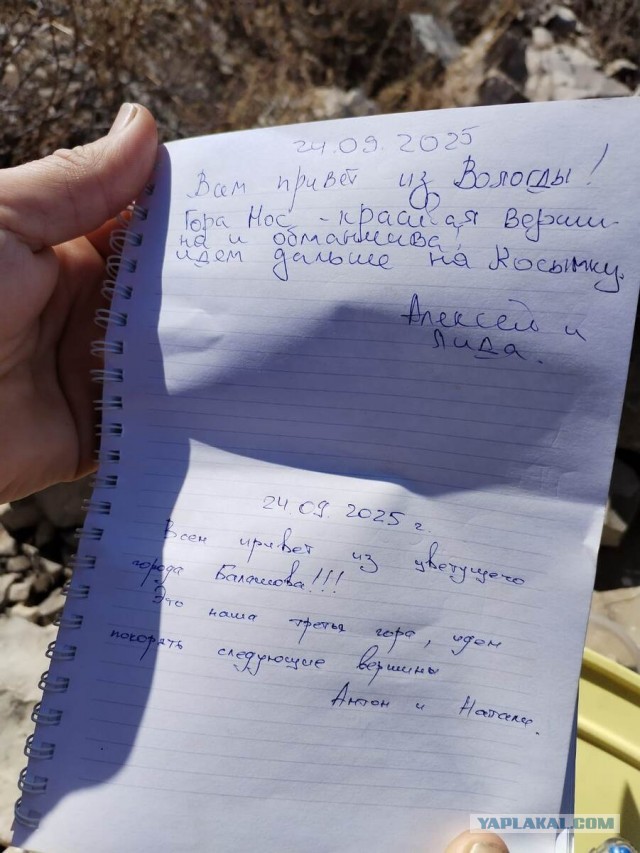 24.09.2025
Всем привет из Вологды!
Гора Нос - красивая верши-
на и обманчива,
идем дальше на Косынку.
Алексей и
Лида.
24 09. 2025 г.
Всем привет из цветущего
города Балашова!!!
Это наша третья гора, идем
покорять следующие вершины
Антон и Наталья.
YAPLAKAL.COM